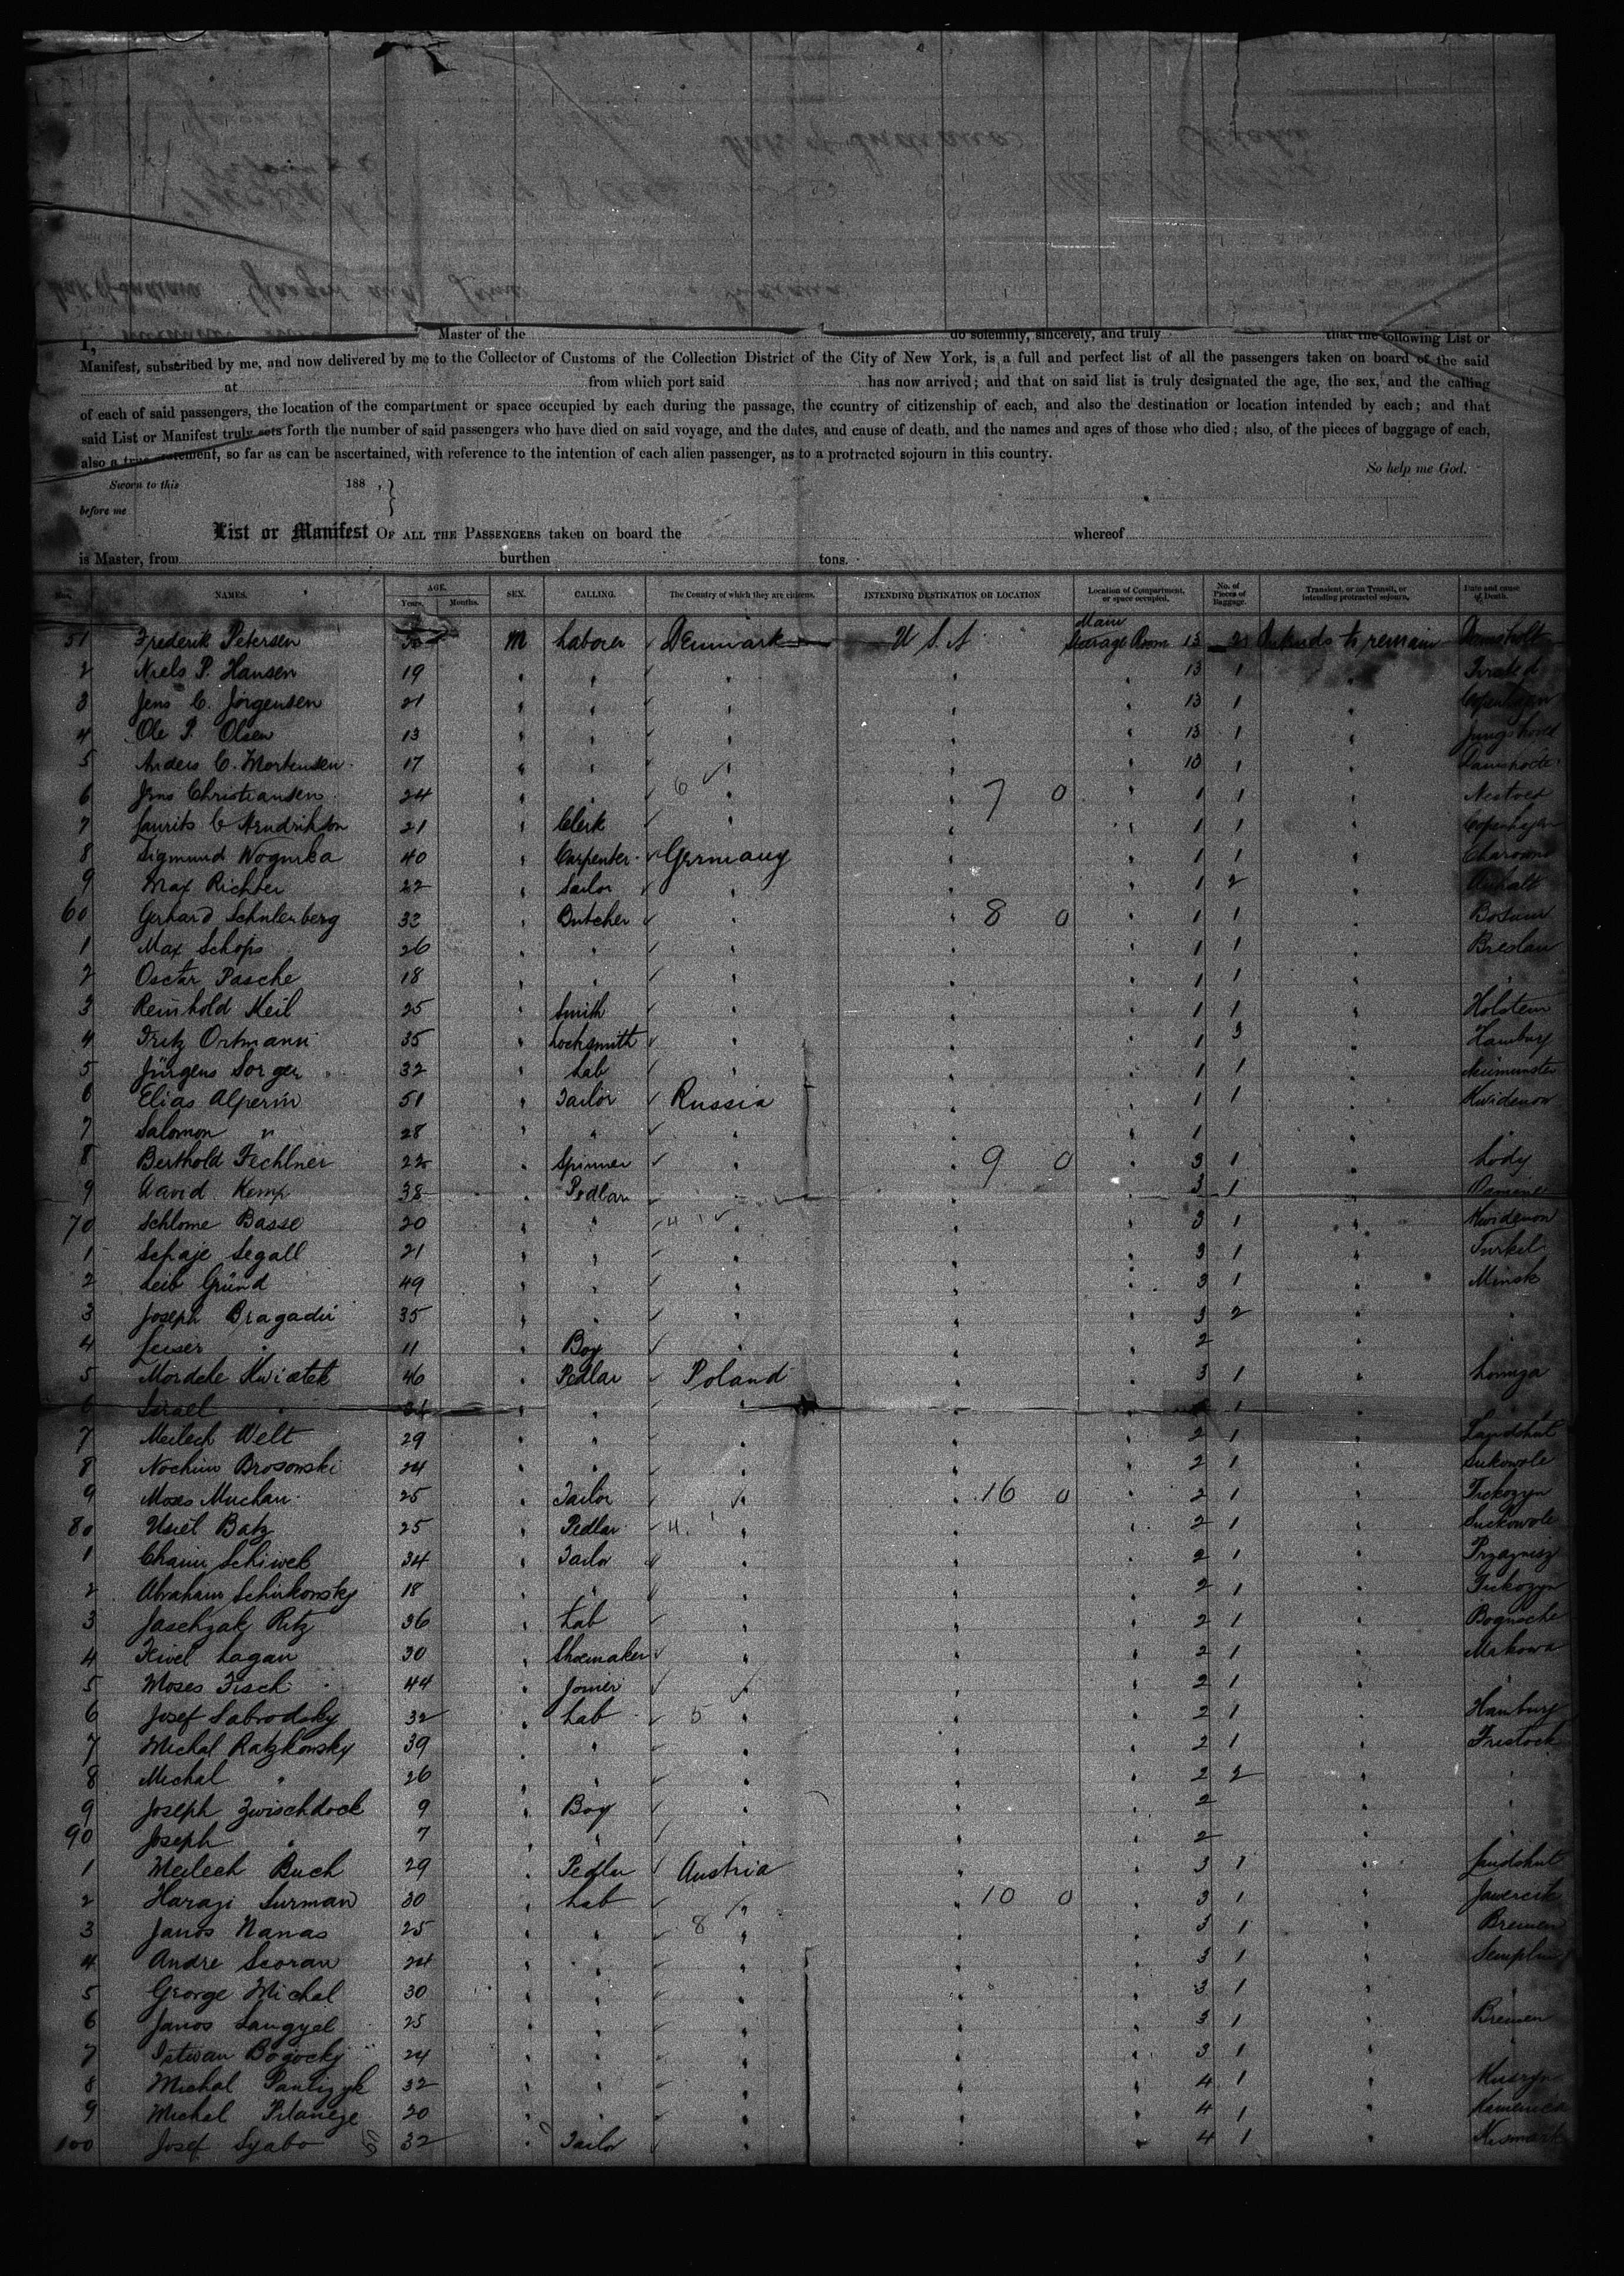 I, Master of the do solemnly, sincerely, and truly that the following List or
Manifest, subscribed by me, and now delivered by me to the Collector of Customs of the Collection District of the City of New York, is a full and perfect list of all the passengers taken on board of the said
at from which port said has now arrived; and that on said list is truly designated the age, the sex, and the calling
of each of said passengers, the location of the compartment or space occupied by each during the passage, the country of citizenship of each, and also the destination or location intended by each; and that
said List or Manifest truly sets forth the number of said passengers who have died on said voyage, and the dates, and cause of death, and the names and ages of those who died; also, of the pieces of baggage of each,
also a true statement, so far as can be ascertained, with reference to the intention of each alien passenger, as to a protracted sojourn in this country.
So help me God.
Sworn to this 188 ,
before me
List or Manifest OF ALL THE PASSENGERS taken on board the whereof
is Master, from burthen tons.
Nos. NAMES. AGE. Years. Months. SEX. CALLING. The Country of which they are citizens. INTENDING DESTINATION OR LOCATION Location of Compartment, or space occupied. No. of Pieces of Baggage. Transient, or on Transit, or intending protracted sojourn. Date and cause of Death.
51 Frederik Petersen M Laborer Denmark U S A Main Steerage Room 13 2 Intends to remain
2 Niels P. Hansen 19 " " " " " 13 1 "
3 Jens C. Jörgensen 21 " " " " " 13 1 " Copenhagen
4 Ole P. Olsen 13 " " " " " 13 1 "
5 Anders C. Mortensen 17 " " " " " 13 1 "
6 Jens Christiansen 24 " " 6 " " 7 0 " 1 1 " Nestved
7 Laurits C 21 " Clerk " " " 1 1 " Copenhagen
8 Sigmund 40 " Carpenter Germany " " 1 1 "
9 Max Richter 22 " Sailor " " " 1 2 " Anhalt
60 Gerhard Schulenberg 32 " Butcher " " 8 0 " 1 1 "
1 Max Schops 26 " " " " " 1 1 " Breslau
2 Oscar Pasche 18 " " " " " 1 1 " "
3 Reinhold Keil 25 " Smith " " " 1 1 " Holstein
4 Fritz Ortmann 35 " Locksmith " " " 1 3 " Hamburg
5 Jürgens Sorgen 32 " Lab " " " 1 1 "
6 Elias Alperin 51 " Tailor Russia " " 1 1 " Kwidenow
7 Salomon " 28 " " " " " 1 " "
8 Berthold Fechlner 22 " Spinner " " 9 0 " 3 1 " Lody
9 David Kemp 38 " Pedlar " " " 3 1 "
70 Schlome Basse 20 " " 4 " " " 3 1 " Kwidenow
1 Schaje Segall 21 " " " " " 3 1 " Turkel
2 Leib Gründ 49 " " " " " 3 1 " Minsk
3 Joseph Bragadir 35 " " " " " 3 2 " "
4 Leiser " 11 " Boy " " " 2 " "
5 Mordche Kwiatek 46 " Pedlar Poland " " 3 1 " Lomza
6 Israel " " " " " " 1
7 Meilech Welt 29 " " " " " 2 1 " Landshut
8 Nochim Brosowski 24 " " " " " 2 1 " Sukowole
9 Moses Muchau 25 " Tailor " " 16 0 " 2 1 " Tickozyn
80 Usiel Batz 25 " Pedlar 4 " " " 2 1 " Suckowole
1 Chaim Schiwek 34 " Tailor " " " 2 1 " Przaznysz
2 Abraham Schirkowsky 18 " " " " " 2 1 " Tickozyn
3 Jaschzak Ritz 36 " Lab " " " 2 1 "
4 Fiwel Lagan 30 " Shoemaker " " " 2 1 " Makowa
5 Moses Fisch 44 " Joiner " " " 2 1 " "
6 Josef Sabrodsky 32 " Lab 5 " " " 2 1 " Hamburg
7 Michal Ratzkowsky 39 " " " " " 2 1 " Fristock
8 Michal " 26 " " " " " 2 2 " "
9 Joseph Zwischdock 9 " Boy " " " 2 " "
90 Joseph " 7 " " " " " 2 " "
1 Meilech Buch 29 " Pedlar Austria " " 3 1 " Landshut
2 Harazi Surman 30 " Lab " " 10 0 " 3 1 "
3 Janos Nanas 25 " " 8 " " " 3 1 " Bremen
4 Andre Scoran 24 " " " " " 3 1 " Semplin
5 George Michal 30 " " " " " 3 1 " "
6 Janos Langyel 25 " " " " " 3 1 " Bremen
7 Istwan Bogocky 24 " " " " " 3 1 " "
8 Michal 32 " " " " " 4 1 "
9 Michal 20 " " " " " 4 1 " Kamenica
100 Josef Szabo 32 " Tailor " " " 4 1 " Kesmark